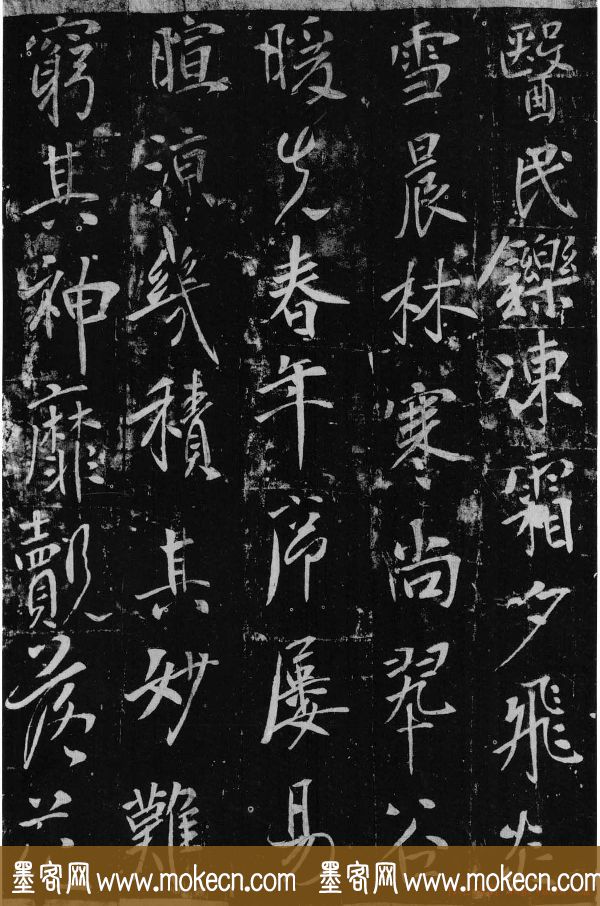 醫民鑠凍霜夕飛炎
雪晨林寒尚翠谷
暖先春年序屢易
暄涼幾積真妙難
窮其神靡覿落花
墨客网 www.mokecn.com 墨客网 www.mokecn.com